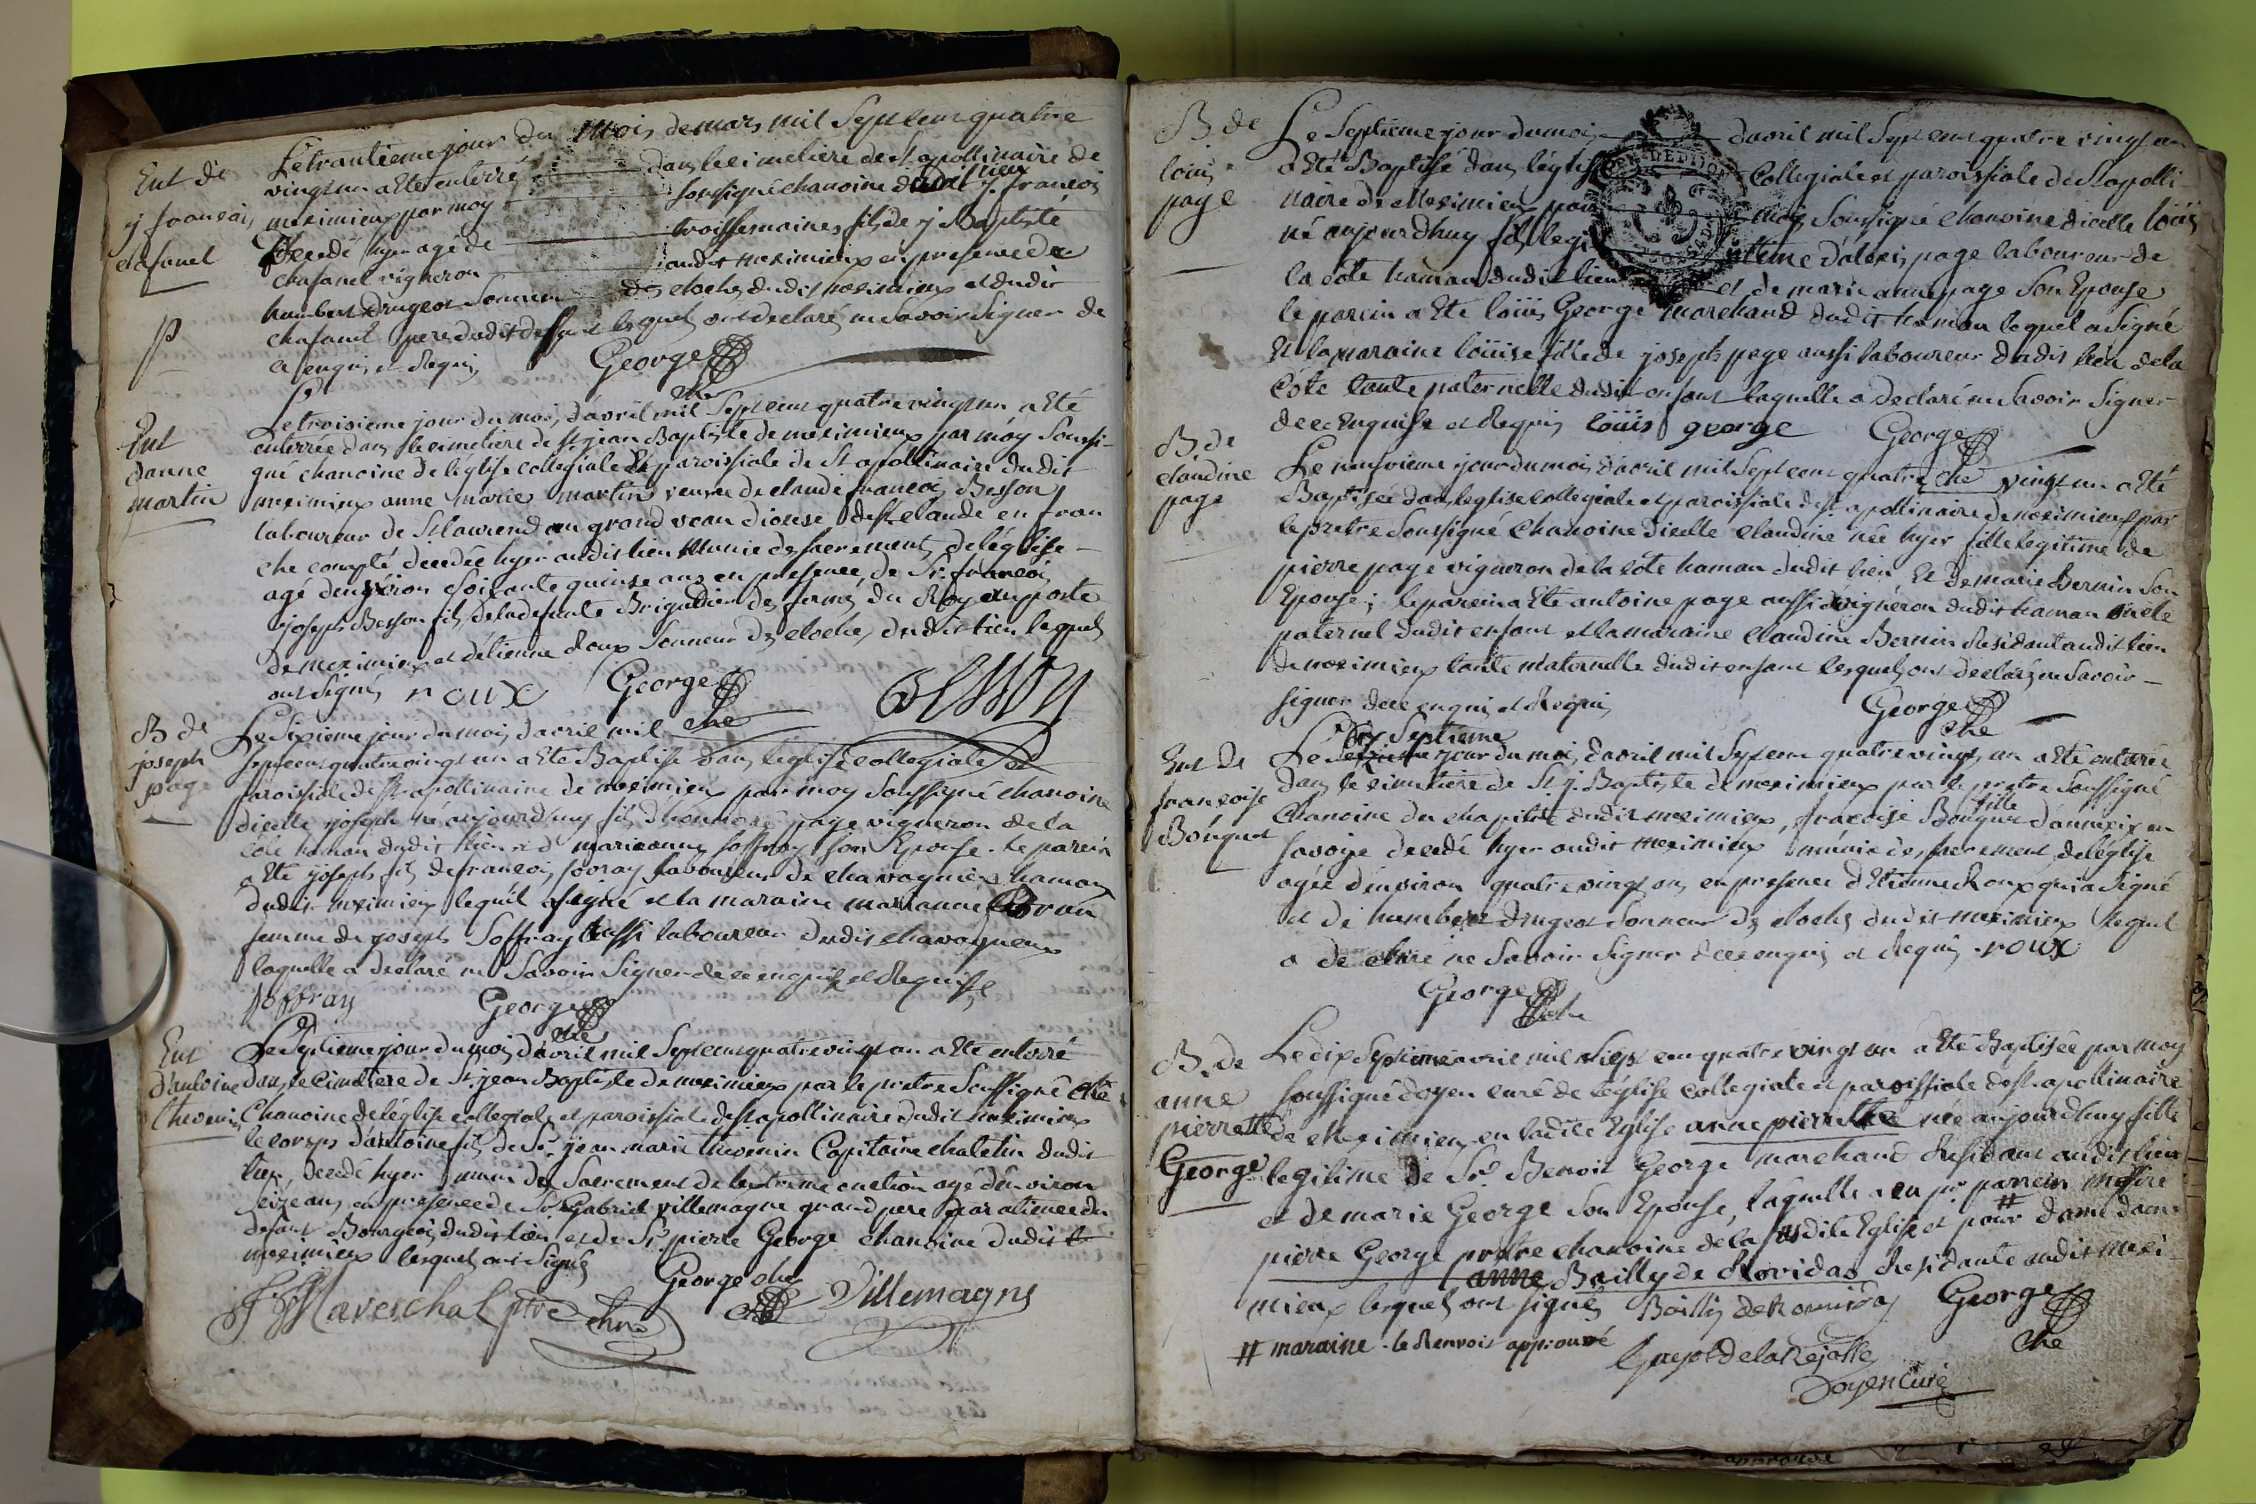 Ent de
j françois
chafanel
Le trantieme jour du mois de mars mil Sept cens quatre
vingt un a ete enterré dans le cimetiere de St apollinaire de
meximieux par moy soussigné chanoine dudit lieux j. francois
Decedé hyer agé de trois semaines fils de j Baptiste
chafanel vigneron audit meximieux en presence de
humbert drugeot Sonneur des cloches dudit meximieux et dudit
chafanel pere dudit deffunt lesquels ont declaré ne Savoir Signer de
ce enquis et Requis George
che
Ent
danne
martin
Le troisieme jour du mois d'avril mil Sept cens quatre vingt un a Eté
enterrée dans le cimetiere de St jean Baptiste de meximieux par moy Soussi-
gné chanoine de l'église collegiale et paroissiale de St apollinaire dudit
meximieux anne marie martin veuve de claude francois Besson
laboureur de St laurend en grand veau diocese de St claude en fran
che compté decedée hyer audit lieu Munie des sacrements de l'église -
agé denviron Soixante quinse ans en presence de Sr. francois
joseph Besson fils de la defunte Brigadier des fermes du Roy au poste
de meximieux et d'étienne Roux Sonneur des cloches dudit lieu lesquels
ont Signés roux George Besson
che
B de
joseph
page
Le Sixieme jour du mois d'avril mil
Sept cens quatre vingt un a Eté Baptisé dans l'église collegiale et
paroissiale de St apollinaire de meximieux par moy Soussigné chanoine
dicelle joseph né aujourd'huy fils d'honnoré page vigneron de la
cote hamau dudit lieu et de marieanne Soffray son Epouse. le parein
a Eté joseph fils de francois Soffray laboureur de chavagnieux hamau
dudit meximieux lequel a signé et la maraine marianne Brun
femme de joseph Soffray aussi laboureur dudit chavagneux
laquelle a declaré ne Savoir Signer de ce enquise et Requise
soffray George
che
Ent
d'antoine
thevenin
Le Septieme jour du mois d'avril mil Sept cens quatre vingt un a Eté enterré
dans le cimetiere de St. jean Baptiste de meximieux par le pretre Soussigné che
Chanoine de l'église collegiale et paroissiale de St apollinaire dudit meximieux
le corps d'antoine fils de Sr. jean marie thevenin Capitaine chatelin dudit
lieu, decedé hyer muni du Sacrement de l'extreme onction agé d'environ
seize ans en presence de Sr Gabriel villemagne grand pere maternel du
defunt Bourgeois dudit lieu et de Sr pierre George chanoine dudit
meximieux lesquels ont Signés
Mareschal ptre chne George che Villemagne
B de
louis
page
Le Septieme jour du mois d'avril mil Sept cens quatre vingt un
a Eté Baptisé dans l'église Collegiale et paroissiale de St apolli-
naire de Meximieux par moy Soussigné chanoine dicelle loüis
né aujourd'huy fils legitime d'alexis page laboureur de
la cote hamau dudit lieu et de marie anne page Son Epouse
le parein a Eté loüis George marchand dudit hamau lequel a Signé
Et la maraine loüise fille de joseph page aussi laboureur dudit lieu de la
Côte tante paternelle dudit enfant laquelle a declaré ne Savoir Signer
de ce Enquise et Requis loüis george George
che
B de
claudine
page
Le neufvieme jour du mois d'avril mil Sept cens quatre vingt un a Eté
Baptisée dans l'eglise collegiale et paroissiale de St apollinaire de meximieux par
le pretre Soussigné Chanoine dicelle Claudine née hyer fille legitime de
pierre page vigneron de la côte hamau dudit lieu Et de marie Bernin Son
Epouse; le parein a Eté antoine page aussi vigneron dudit hamau oncle
paternel dudit enfant et la maraine Claudine Bernin Residant audit lieu
de meximieux tante maternelle dudit enfant lesquels ont declarés ne Savoir -
signer de ce enquis et Requis George
che
Ent de
francoise
Bouquet
dix Septieme
Le jour du mois d'avril mil Sept cens quatre vingt un a Eté enterrée
dans le cimetiere de St j. Baptiste de meximieux par le pretre Soussigné
Chanoine du chapitre dudit meximieux, francoise Bouquet fille d'annexix en
Savoye decedé hyer audit meximieux munie des sacrement de l'église
agée d'environ quatre vingt ans en presence d'Etienne Roux qui a Signé
et de humbert drugeot Sonneur des cloches dudit meximieux lequel
a declaré ne Savoir Signer de ce enquis et Requis. roux
George
che
B. de
anne
pierrette
George
Le dix Septieme avril mil Sept cent quatre vingt un a Eté Baptisée par moy
soussigné doyen curé de l'église collegiale et paroissiale de St. apollinaire
de Meximieux en ladite Eglise anne pierrette née aujourd'huy fille
legitime de Sr. Benoit George marchand Residant audit lieu
et de marie George Son Epouse, laquelle a eu pr parrein Messire
pierre George pretre chanoine de la susdite Eglise et pour # dame
anne Bailly de Rovidas Residante audit mexi-
mieux lesquels ont signés Bailly de Rovidas George
che
# maraine. le Renvois approuvé
doyen curé